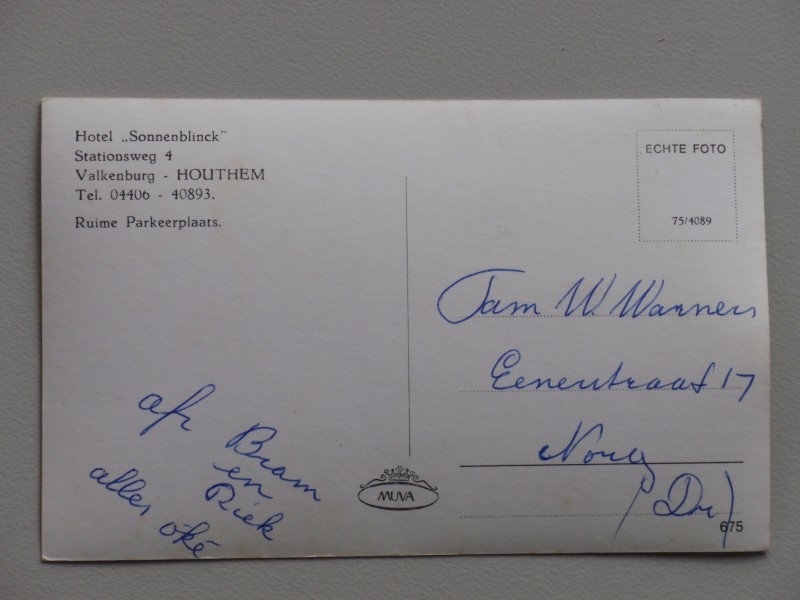 Hotel „Sonnenblinck"
Stationsweg 4
Valkenburg - HOUTHEM
Tel. 04406 - 40893.
Ruime Parkeerplaats.
ECHTE FOTO
75/4089
Fam W. Warners
Eenerstraat 17
Norg
(Dr)
afz
Bram
en
Riek
alles
oké
MUVA
675